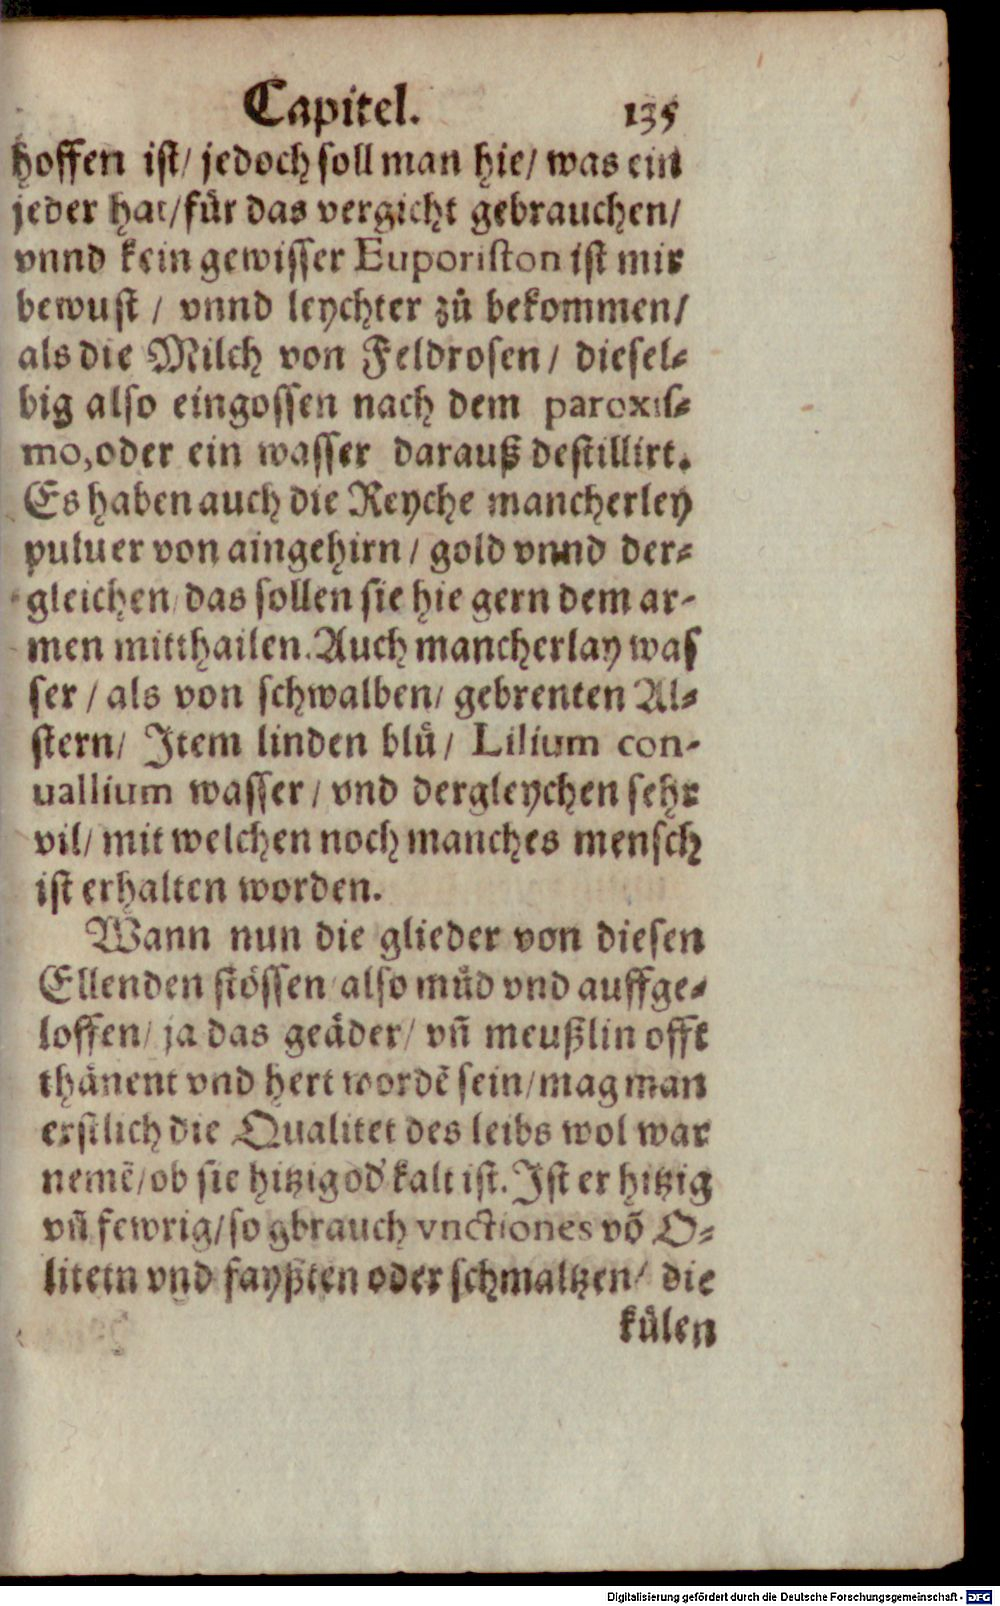 Capitel. 135
hoffen ist/ jedoch soll man hie/ was ein
jeder hat/für das vergicht gebrauchen/
vnnd kein gewisser Euporiston ist mir
bewust / vnnd leychter zů bekommen/
als die Milch von Feldrosen / diesel-
big also eingossen nach dem paroxis-
mo, oder ein wasser darauß destillirt.
Es haben auch die Reyche mancherley
puluer von aingehirn / gold vnnd der-
gleichen/ das sollen sie hie gern dem ar-
men mitthailen. Auch mancherlay was
ser / als von schwalben/ gebrenten Al-
stern/ Item linden blů/ Lilium con-
uallium wasser / vnd dergleychen sehr
vil/ mit welchen noch manches mensch
ist erhalten worden.
Wann nun die glieder von diesen
Ellenden stössen also můd vnd auffge-
loffen/ ja das geäder/ vñ meußlin offt
thänent vnd hert wordē sein/mag man
erstlich die Qualitet des leibs wol war
nemē/ob sie hitzig od' kalt ist. Ist er hitzig
vñ fewrig/so gbrauch vnctiones vō O-
litetn vnd fayßten oder schmaltzen/ die
külen
Digitalisierung gefördert durch die Deutsche Forschungsgemeinschaft - DFG